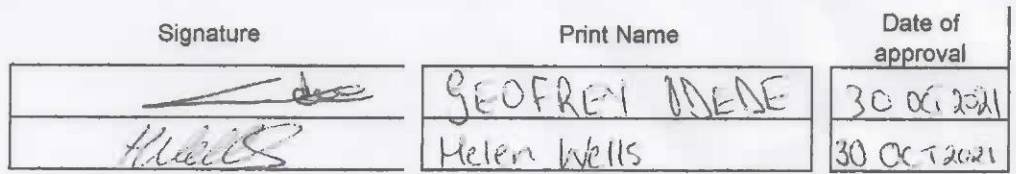 Signature Print Name Date of approval
GEOFREY 30 OCT 2021
HWells Helen Wells 30 OCT 2021